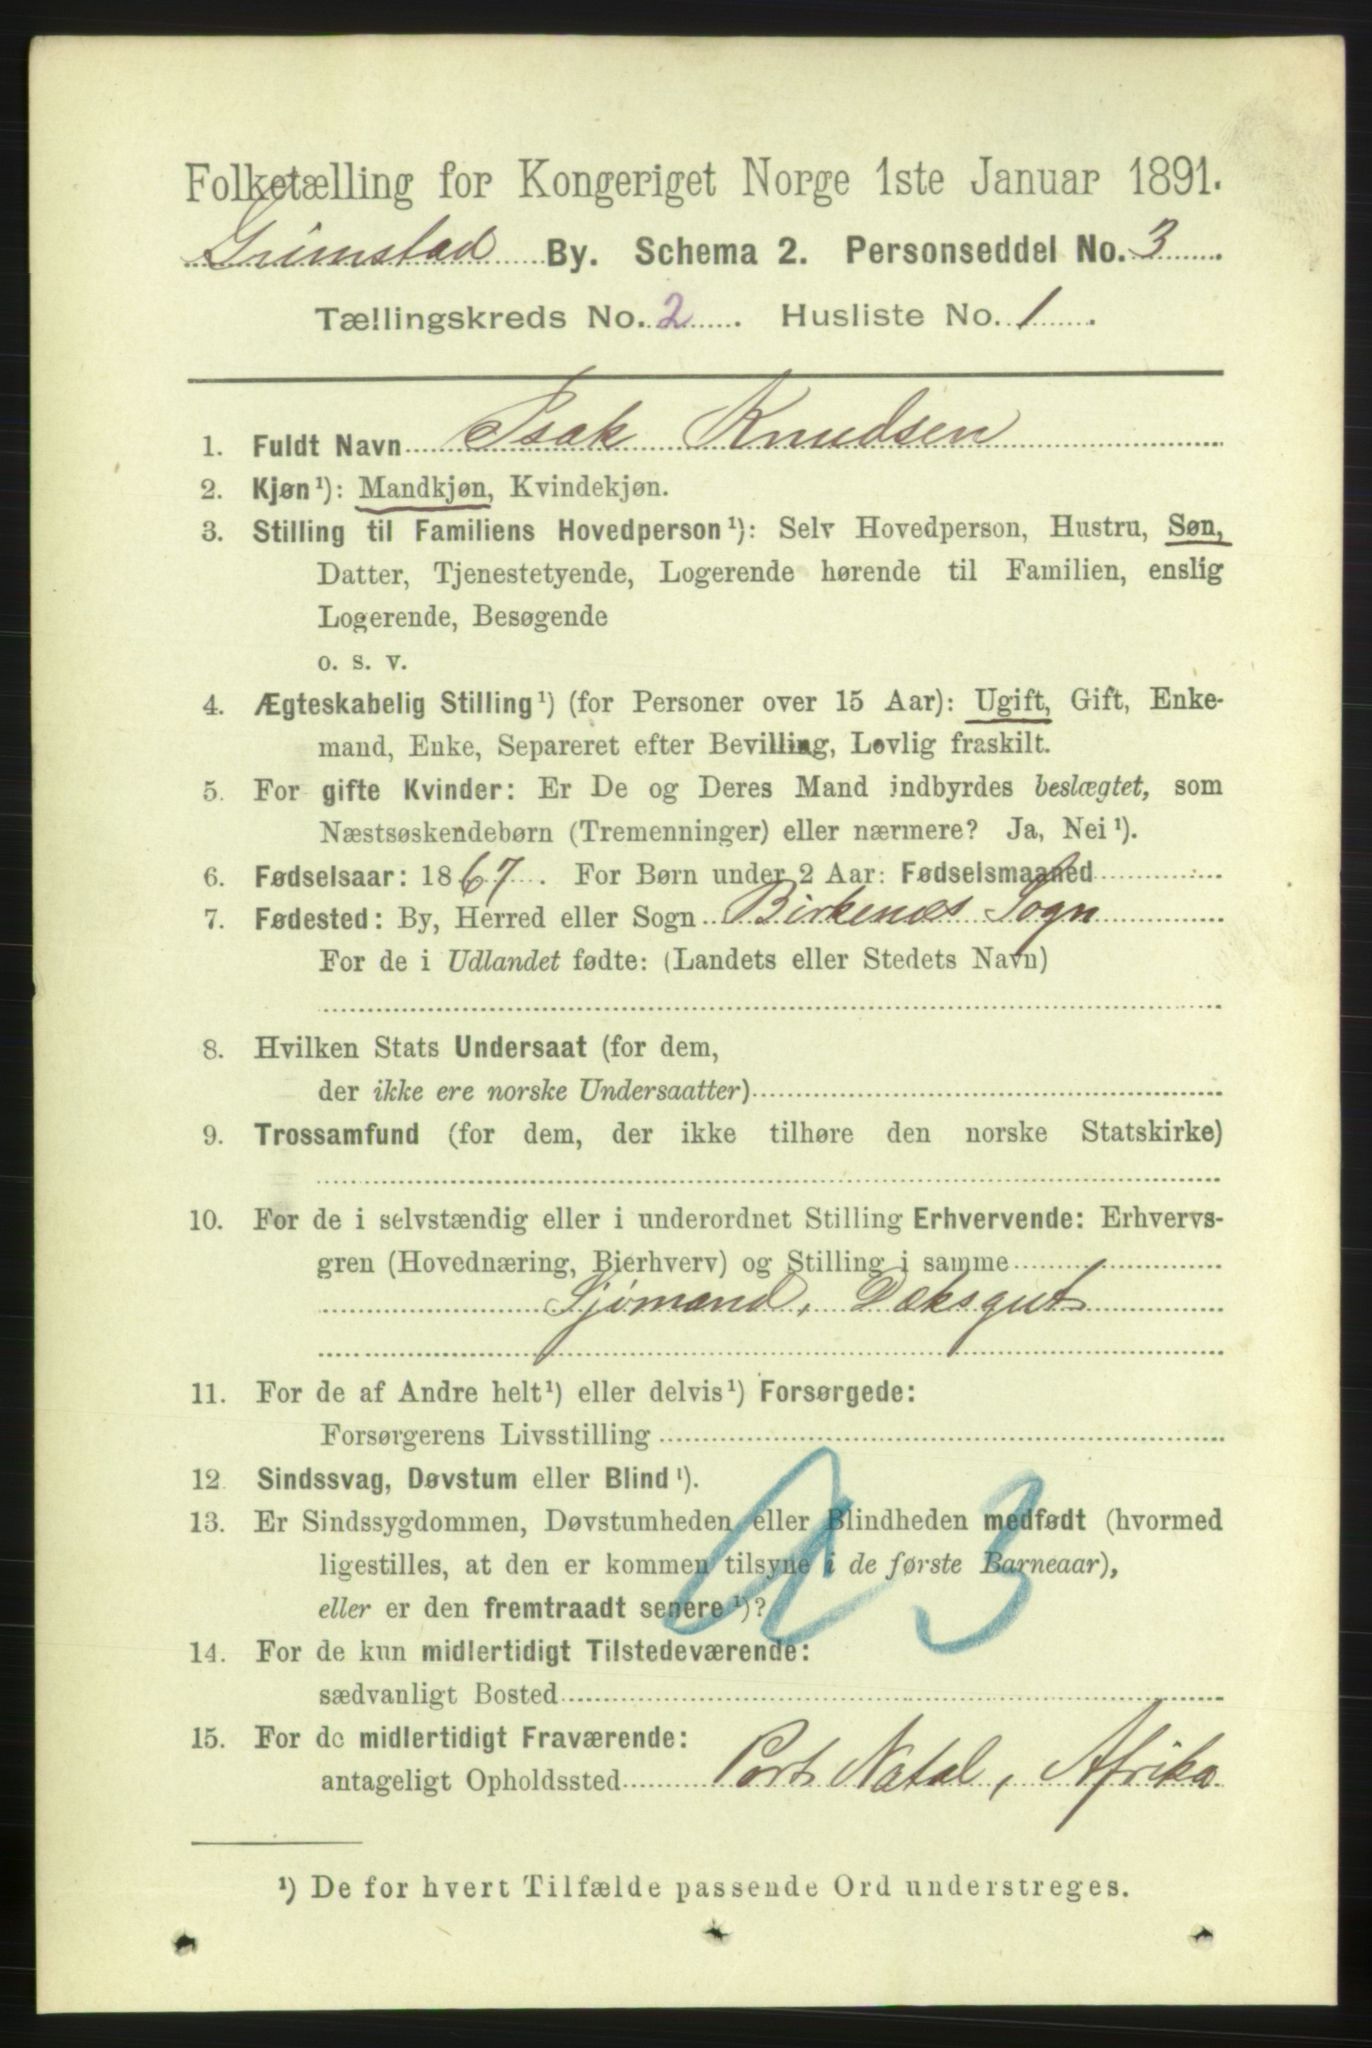 Folketælling for Kongeriget Norge 1ste Januar 1891.
Grimstad By. Schema 2. Personseddel No. 3
Tællingskreds No. 2 . Husliste No. 1 .
1. Fuldt Navn Isak Knudsen
2. Kjøn¹): Mandkjøn, Kvindekjøn.
3. Stilling til Familiens Hovedperson¹): Selv Hovedperson, Hustru, Søn,
Datter, Tjenestetyende, Logerende hørende til Familien, enslig
Logerende, Besøgende
o. s. v.
4. Ægteskabelig Stilling¹) (for Personer over 15 Aar): Ugift, Gift, Enke-
mand, Enke, Separeret efter Bevilling, Lovlig fraskilt.
5. For gifte Kvinder: Er De og Deres Mand indbyrdes beslægtet, som
Næstsøskendebørn (Tremenninger) eller nærmere? Ja, Nei¹).
6. Fødselsaar: 1867. For Børn under 2 Aar: Fødselsmaaned
7. Fødested: By, Herred eller Sogn Birkenæs Sogn
For de i Udlandet fødte: (Landets eller Stedets Navn)
8. Hvilken Stats Undersaat (for dem,
der ikke ere norske Undersaatter)
9. Trossamfund (for dem, der ikke tilhøre den norske Statskirke)
10. For de i selvstændig eller i underordnet Stilling Erhvervende: Erhvervs-
gren (Hovednæring, Bierhverv) og Stilling i samme
Sjømand, Dæksgut
11. For de af Andre helt¹) eller delvis¹) Forsørgede:
Forsørgerens Livsstilling
12. Sindssvag, Døvstum eller Blind¹).
13. Er Sindssygdommen, Døvstumheden eller Blindheden medfødt (hvormed
ligestilles, at den er kommen tilsyne i de første Barneaar),
eller er den fremtraadt senere¹)?
14. For de kun midlertidigt Tilstedeværende:
sædvanligt Bosted
15. For de midlertidigt Fraværende:
antageligt Opholdssted Port Natal, Afrika
¹) De for hvert Tilfælde passende Ord understreges.